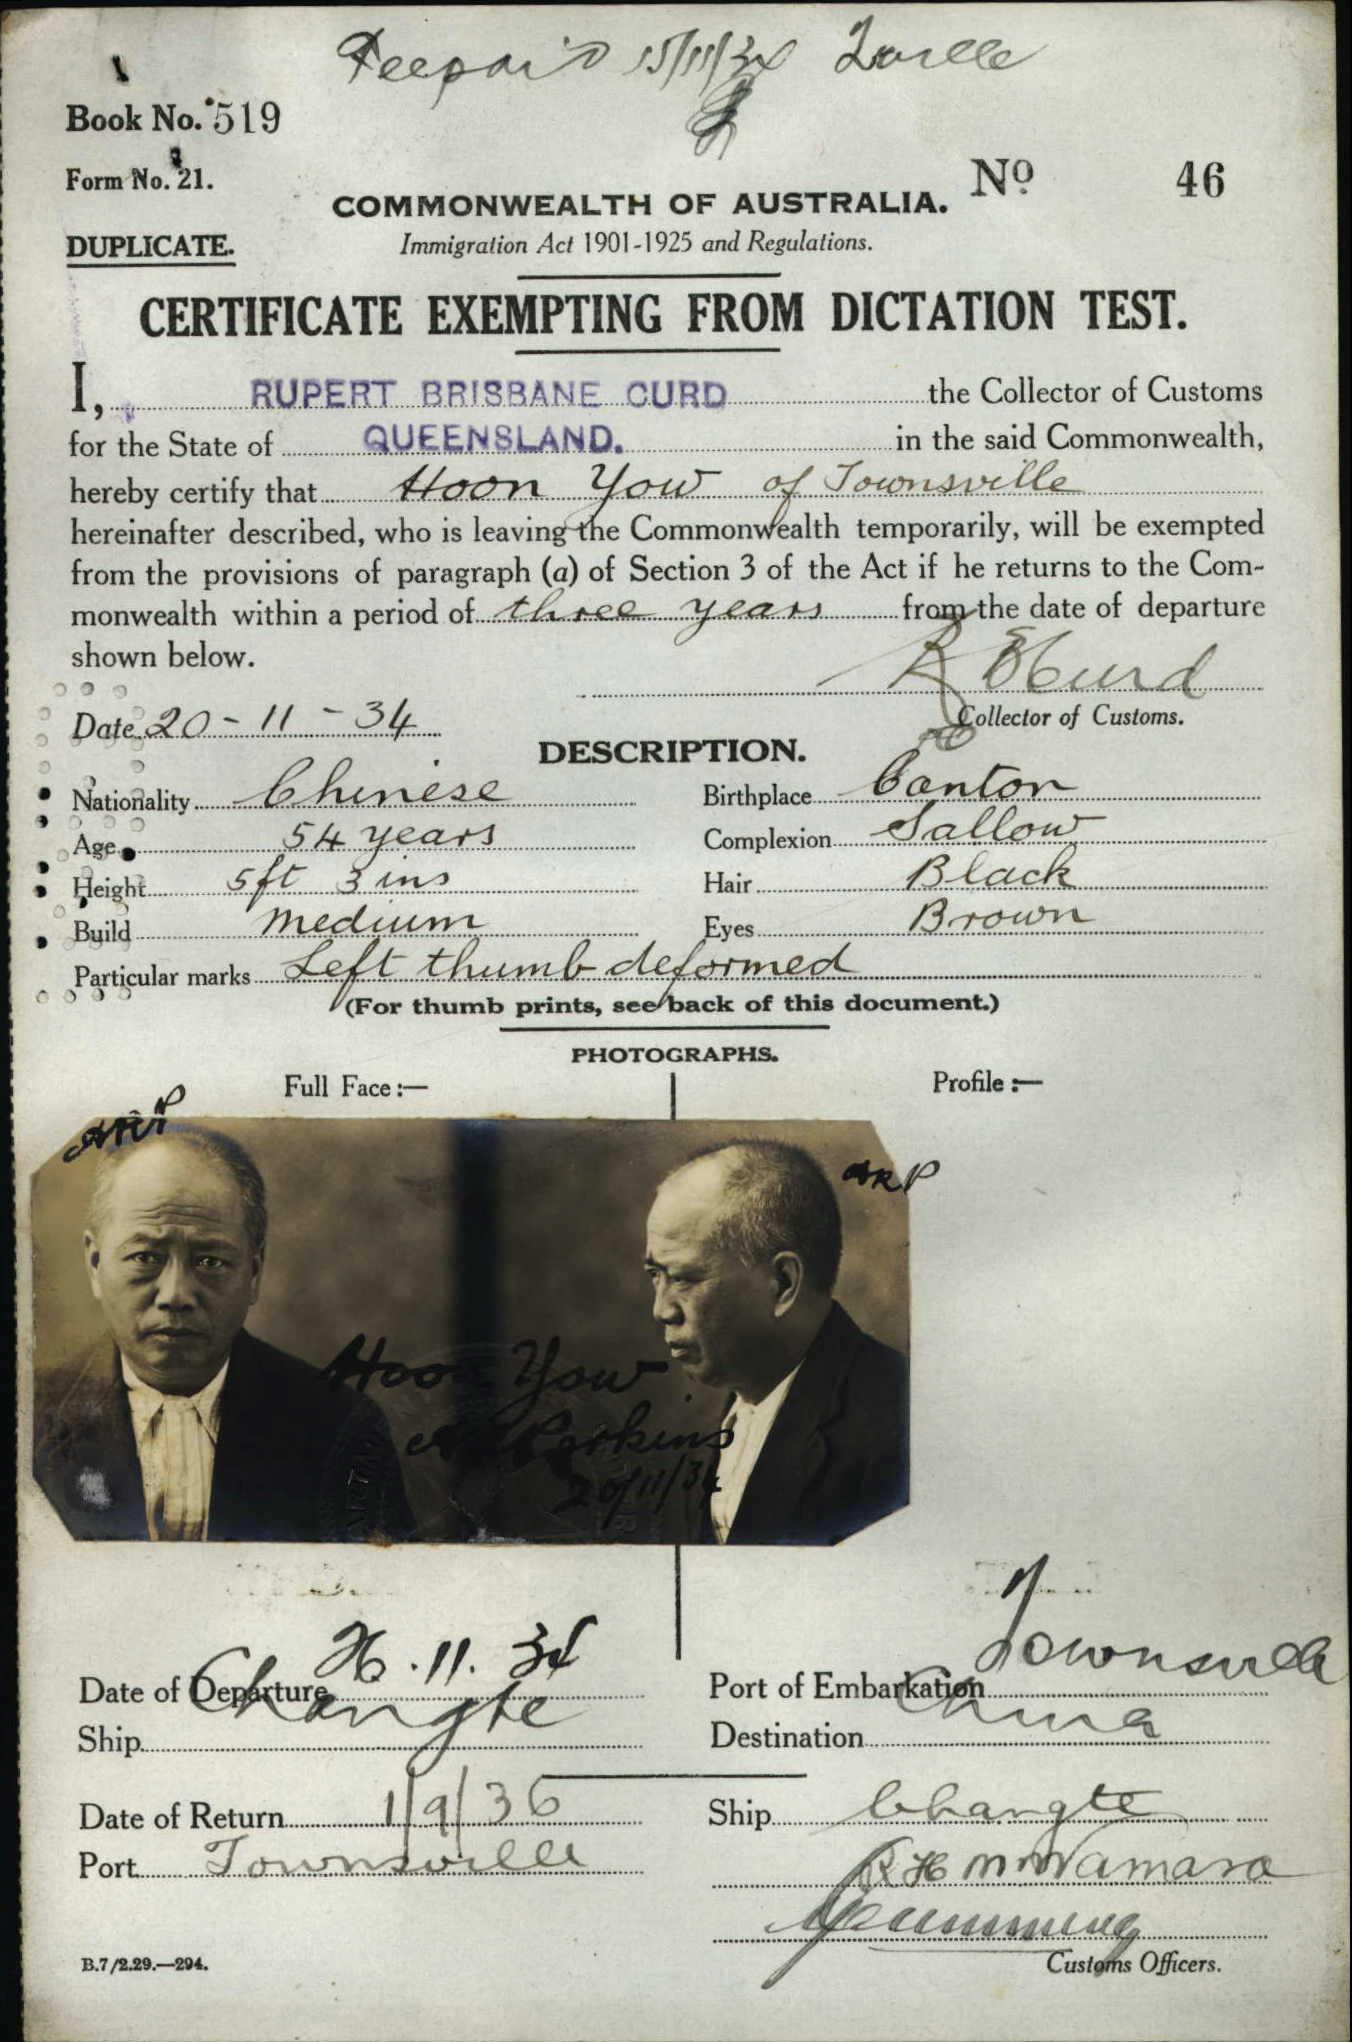 Feepaid 15/11/34 Tville
Book No. 519
Form No. 21.
COMMONWEALTH OF AUSTRALIA. No 46
DUPLICATE.
Immigration Act 1901-1925 and Regulations.
CERTIFICATE EXEMPTING FROM DICTATION TEST.
I, RUPERT BRISBANE CURD the Collector of Customs
for the State of QUEENSLAND. in the said Commonwealth,
hereby certify that Hoon Yow of Townsville
hereinafter described, who is leaving the Commonwealth temporarily, will be exempted
from the provisions of paragraph (a) of Section 3 of the Act if he returns to the Com-
monwealth within a period of three years from the date of departure
shown below.
R B Curd
Date 20-11-34
Collector of Customs.
DESCRIPTION.
Nationality Chinese Birthplace Canton
Age 54 years Complexion Sallow
Height 5ft 3 ins Hair Black
Build Medium Eyes Brown
Particular marks Left thumb deformed
(For thumb prints, see back of this document.)
PHOTOGRAPHS.
Full Face:— Profile:—
ARP
ARP
Hoon Yow
Perkins
20/11/34
Date of Departure 26.11.34 Port of Embarkation Townsville
Ship Changte Destination China
Date of Return 1/9/36 Ship Changte
Port Townsville
R H McNamara
Cumming
B.7/2.29.—294.
Customs Officers.